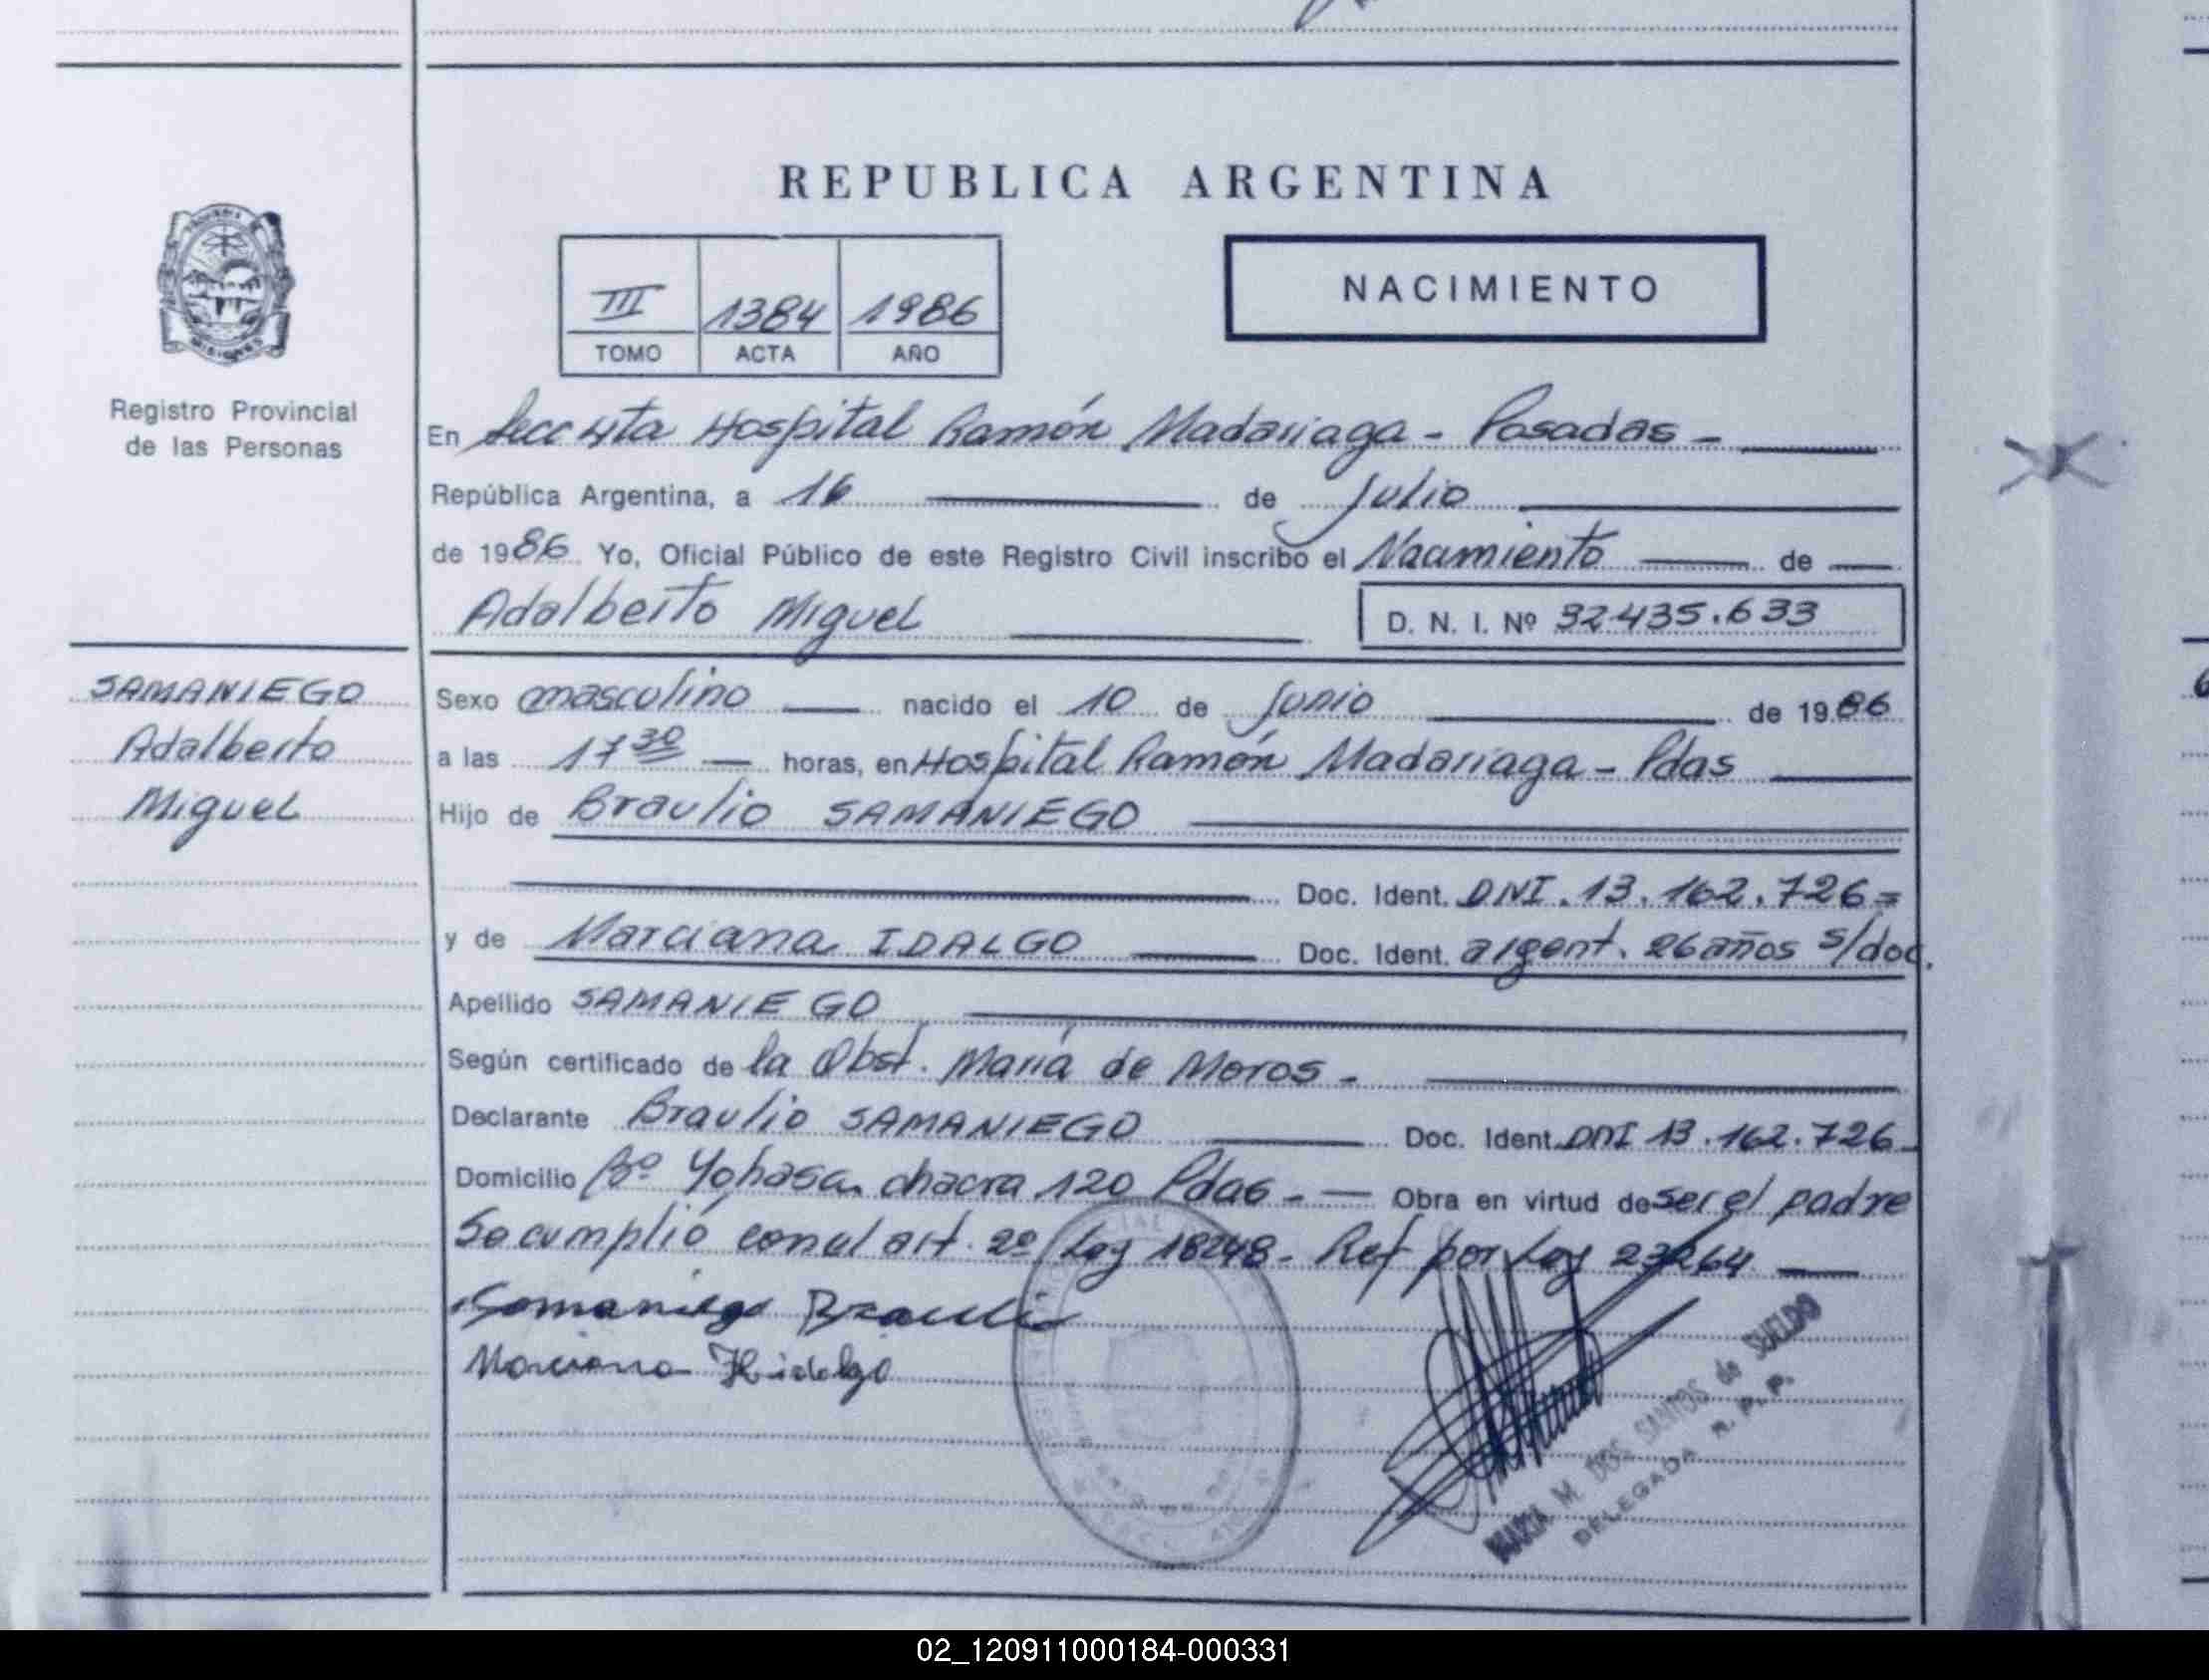 REPUBLICA ARGENTINA
III 1384 1986
TOMO ACTA AÑO
NACIMIENTO
Registro Provincial
de las Personas
En Secc 4ta Hospital Ramón Madariaga - Posadas -
República Argentina, a 16 de Julio
de 1986 Yo, Oficial Público de este Registro Civil inscribo el Nacimiento de
Adalberto Miguel D. N. I. Nº 32.435.633
SAMANIEGO
Adalberto
Miguel
Sexo masculino nacido el 10 de Junio de 1986
a las 17 30 horas, en Hospital Ramón Madariaga - Pdas
Hijo de Braulio SAMANIEGO
Doc. Ident. DNI. 13.162.726=
y de Marciana IDALGO Doc. Ident. argent. 26 años s/doc.
Apellido SAMANIEGO
Según certificado de la Obst. María de Moros -
Declarante Braulio SAMANIEGO Doc. Ident. DNI 13.162.726
Domicilio Bº Yohasa chacra 120 Pdas - Obra en virtud de ser el padre
Se cumplió con el art. 2º Ley 18248 - Ref por Ley 23264
Samaniego Braulio
Marciana Hidalgo
MARIA M. DOS SANTOS de SUELDO
DELEGADA R. P. P.
02_120911000184-000331